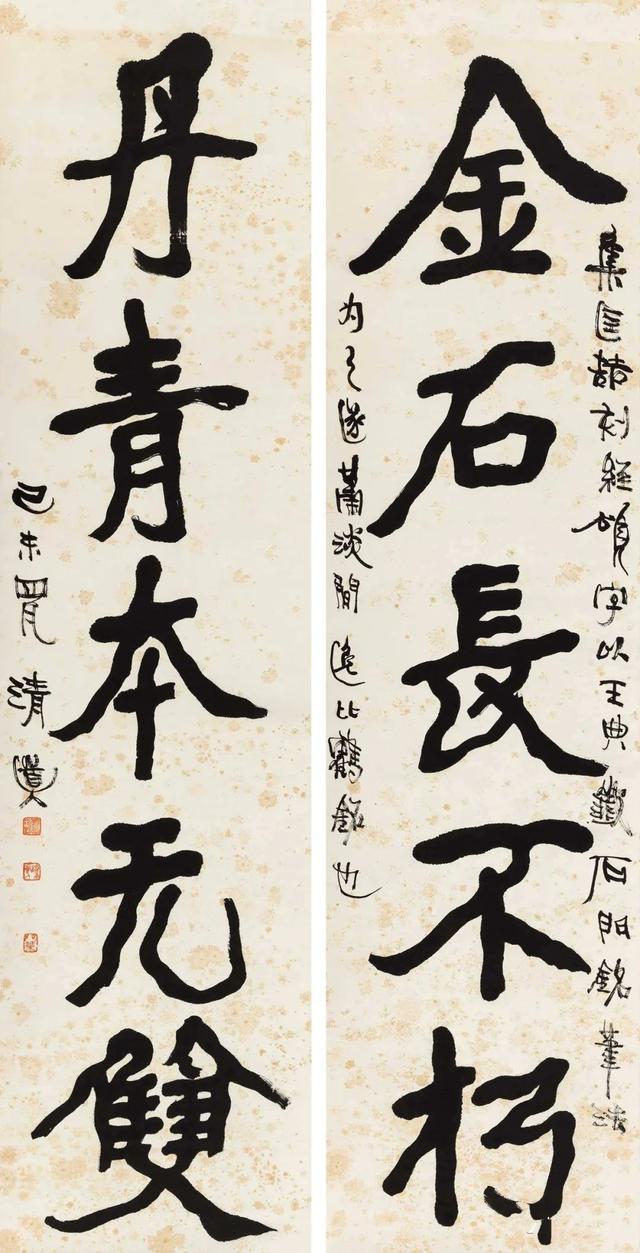 金石長不朽
集匡喆刻經頌字以王典籤石門銘筆法
為之遂蕭淡閒遠比鶴銘也
丹青本无雙
己未四月清道人